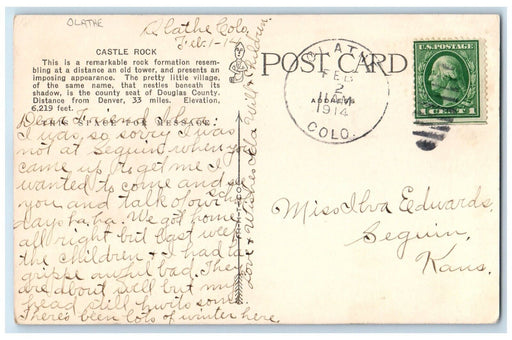 OLATHE
Olathe Colo,
Feb-1-14
CASTLE ROCK
This is a remarkable rock formation resem-
bling at a distance an old tower, and presents an
imposing appearance. The pretty little village,
of the same name, that nestles beneath its
shadow, is the county seat of Douglas County.
Distance from Denver, 33 miles. Elevation,
6,219 feet.
THIS SPACE FOR MESSAGE
Dear Friend Ilva:
I was, so sorry I was
not at Seguin when you
came up to get me I
wanted to come and see
you and talk o'our school
days ha, ha. We got home
all right but last week
the children & I had la
grippe awful bad. They
are about well but my
head still hurts some
There's been lots of winter here
Love & wishes Ida Will & children.
POST CARD
ADDRESS
OLATHE
FEB
2
11AM
1914
COLO.
U.S. POSTAGE
1 CENT 1
Miss Ilva Eedwards,
Seguin,
Kans.